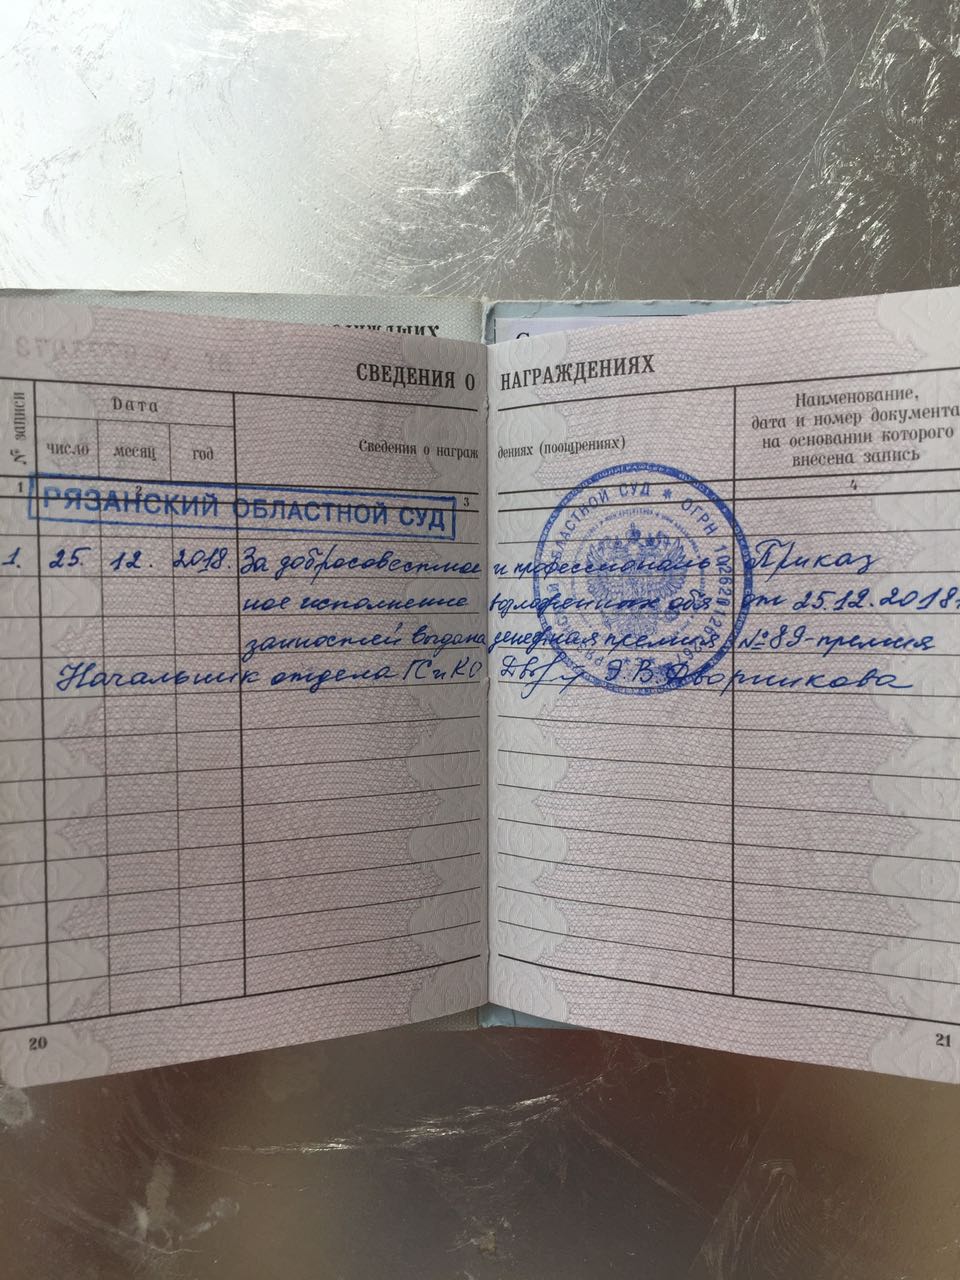 СВЕДЕНИЯ О НАГРАЖДЕНИЯХ
№ записи
Дата
число месяц год
Сведения о награждениях (поощрениях)
Наименование,
дата и номер документа,
на основании которого
внесена запись
1 2 3 4
РЯЗАНСКИЙ ОБЛАСТНОЙ СУД
1. 25. 12. 2018. За добросовестное и профессиональ- Приказ
ное исполнение возложенных обя- от 25.12.2018г
занностей выдана денежная премия №89-премия
Начальник отдела ГСиКО Э.В. Дворникова
ОБЛАСТНОЙ СУД * ОГРН
20
21